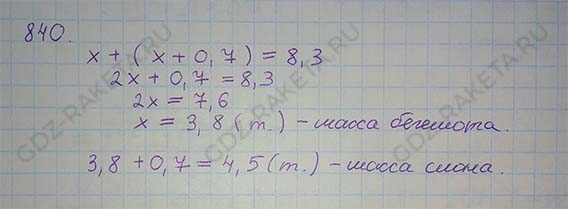 840.
x + ( x + 0,7 ) = 8,3
2x + 0,7 = 8,3
2x = 7,6
x = 3,8 (т.) - масса бегемота.
3,8 + 0,7 = 4,5 (т.) - масса слона.
GDZ-RAKETA.RU
GDZ-RAKETA.RU
GDZ-RAKETA.RU